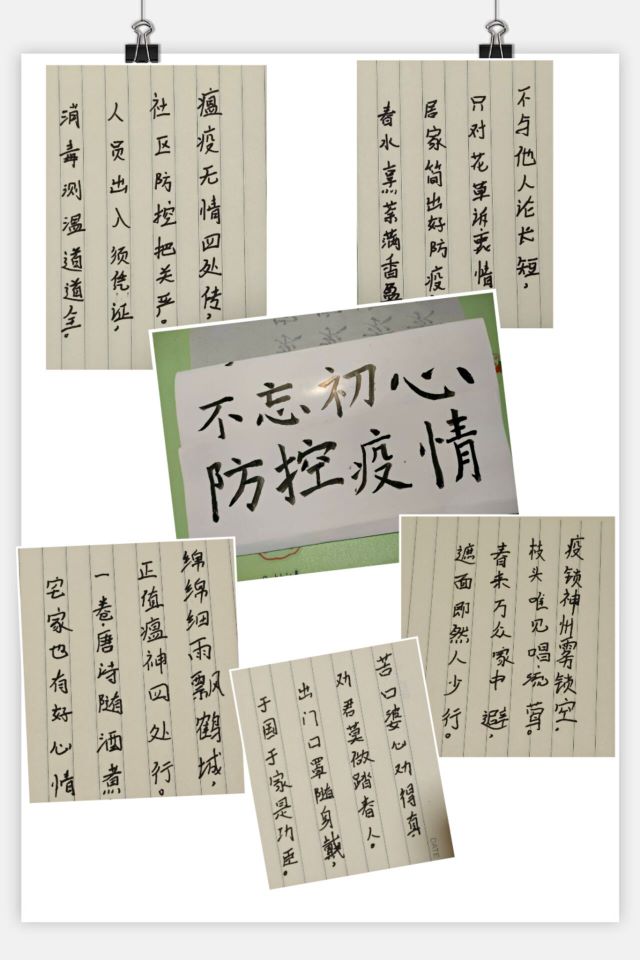 瘟疫无情四处传，
社区防控把关严。
人员出入须凭证，
消毒测温道道全。
不与他人论长短，
只对花草诉衷情
居家简出好防疫
春水烹茶满香盈
不忘初心、
防控疫情
绵绵细雨飘鹤城，
正值瘟神四处行。
一卷唐诗随酒煮
宅家也有好心情
疫锁神州雾锁空，
枝头唯见唱流莺。
春来万众家中避，
遮面即然人少行。
苦口婆心劝得真，
劝君莫做踏春人。
出门口罩随身戴，
于国于家是功臣。
DATE